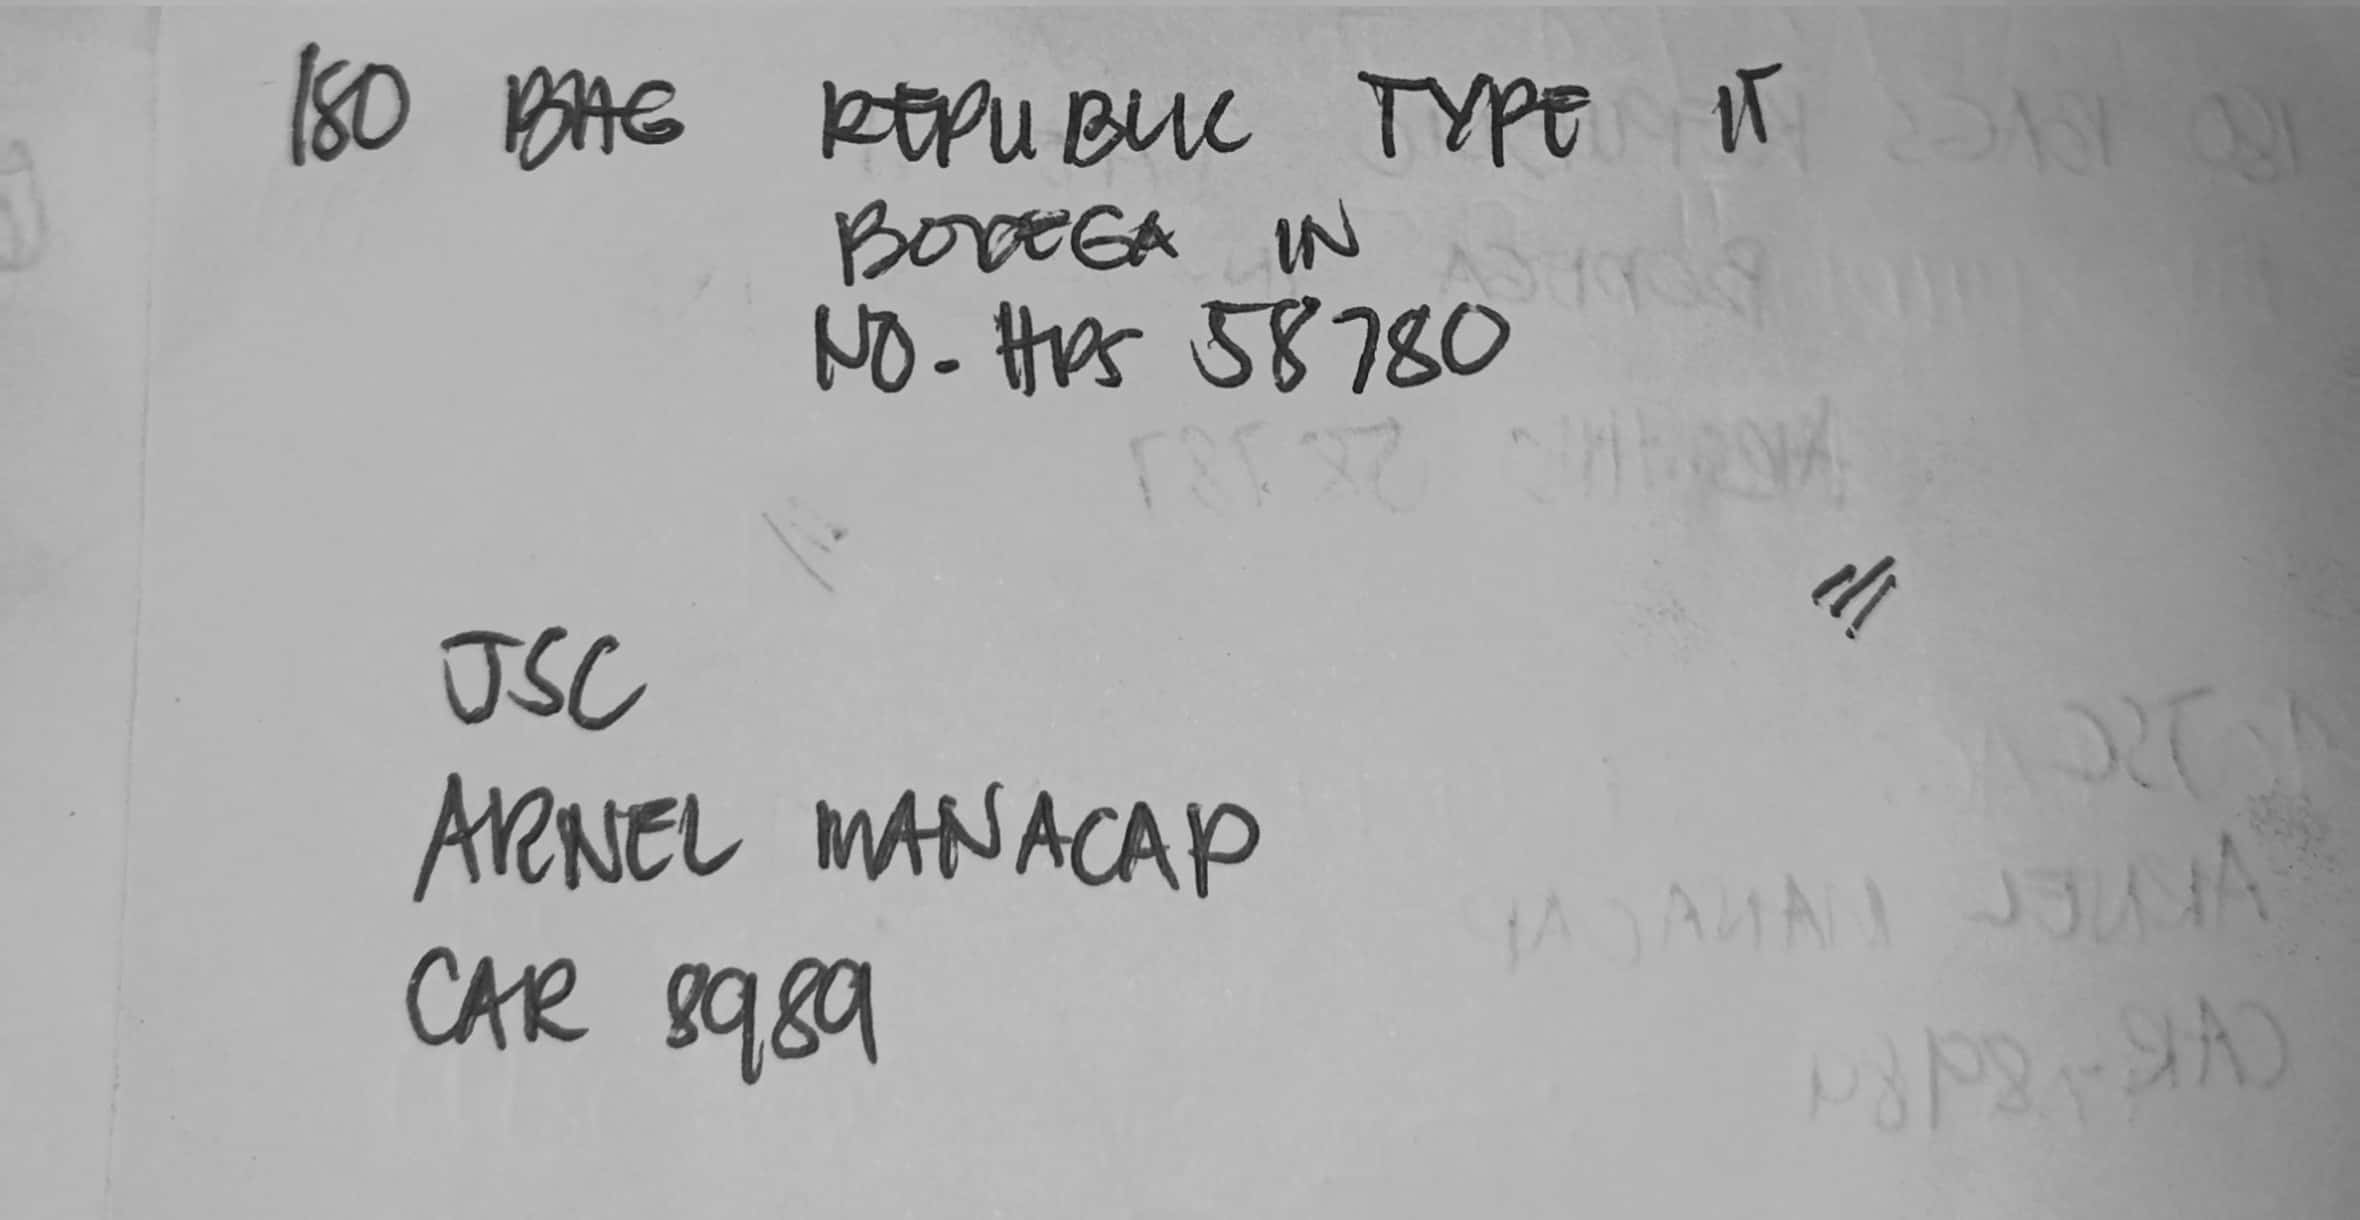 180 BAG REPUBLIC TYPE 1T
BODEGA IN
NO. HPS 58780
JSC
ARNEL MANACAP
CAR 8989